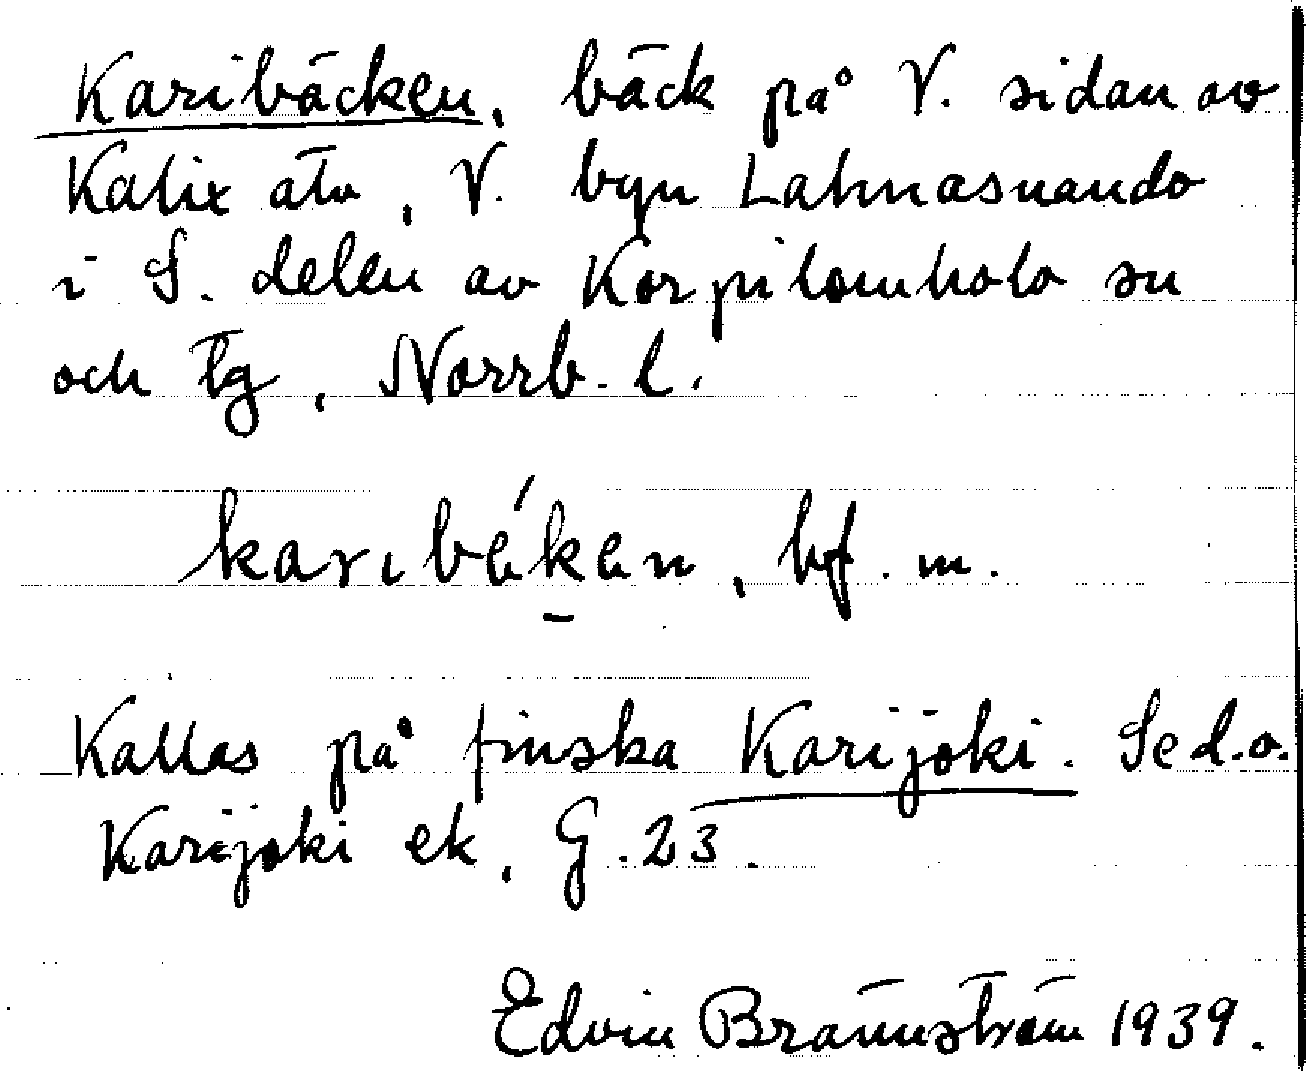 Karibäcken, bäck på V. sidan av
Kalix älv, V. byn Lahnasuando
i S. delen av Korpilombolo sn
och tg, Norrb. l.
karıbék̠en, bf. m.
Kallas på finska Karijoki. Se d.o.
Karijoki ek. G. 23.
Edvin Brännström 1939.